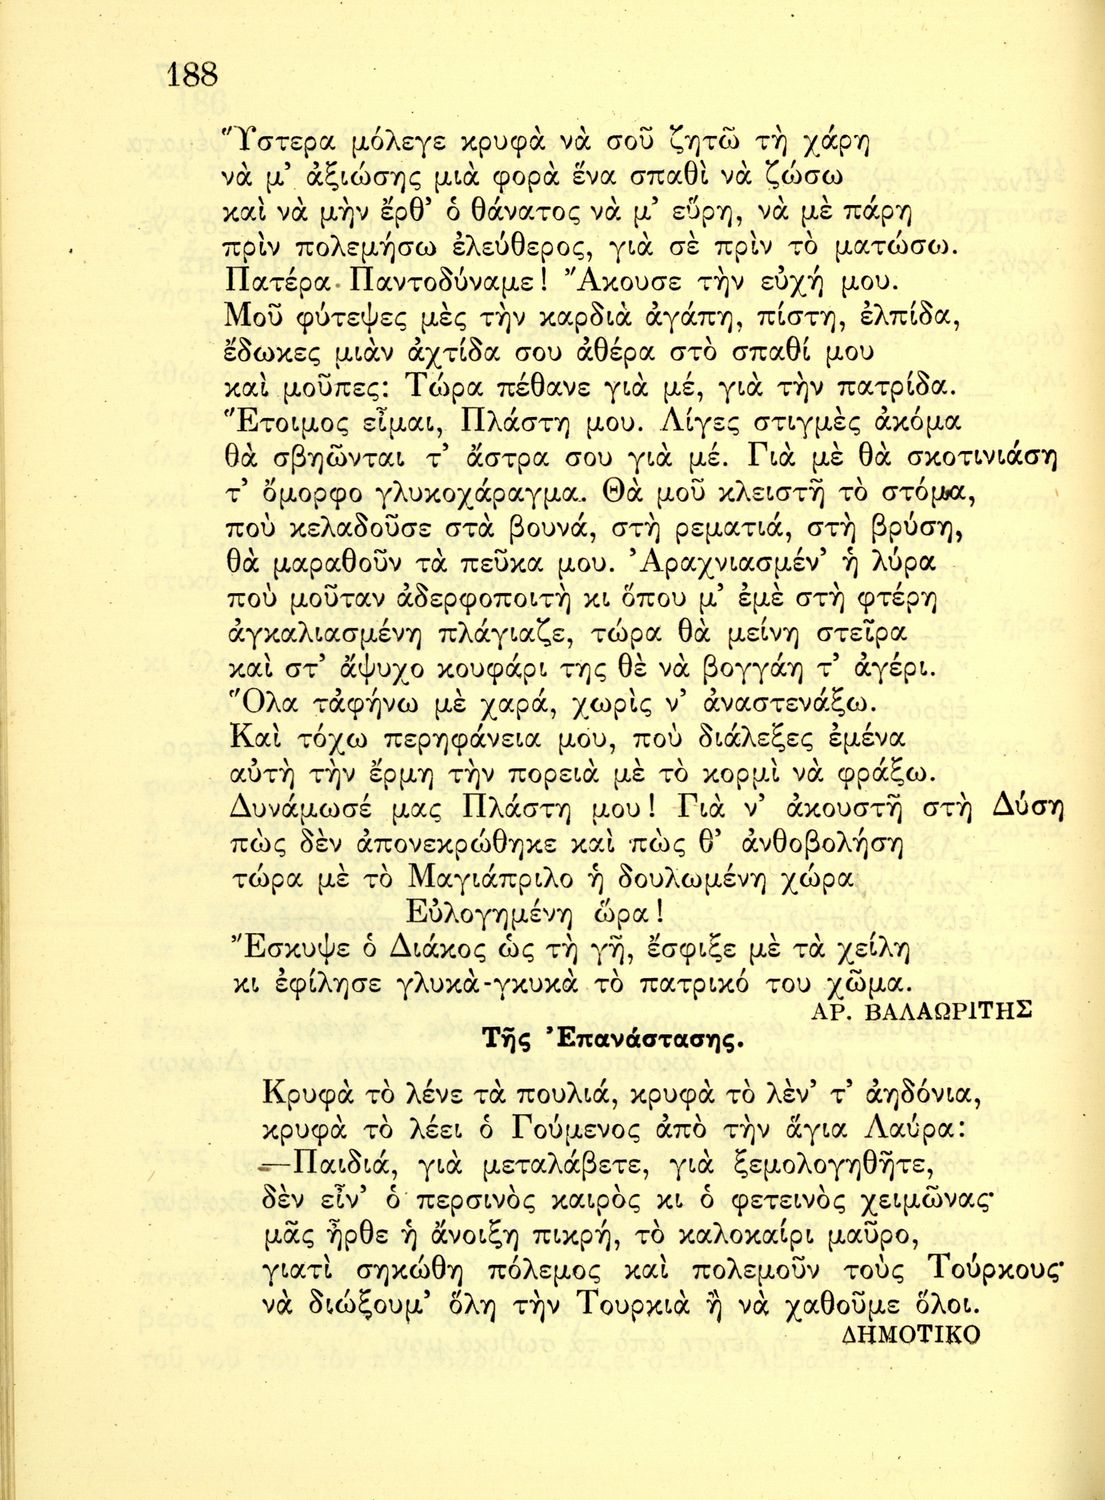 188
Ὕστερα μόλεγε κρυφὰ νὰ σοῦ ζητῶ τὴ χάρη
νὰ μ’ ἀξιώσης μιὰ φορὰ ἕνα σπαθὶ νὰ ζώσω
καὶ νὰ μὴν ἔρθ’ ὁ θάνατος νὰ μ’ εὕρη, νὰ μὲ πάρη
πρὶν πολεμήσω ἐλεύθερος, γιὰ σὲ πρὶν τὸ ματώσω.
Πατέρα Παντοδύναμε! Ἄκουσε τὴν εὐχή μου.
Μοῦ φύτεψες μὲς τὴν καρδιὰ ἀγάπη, πίστη, ἐλπίδα,
ἔδωκες μιὰν ἀχτίδα σου ἀθέρα στὸ σπαθί μου
καὶ μοῦπες: Τώρα πέθανε γιὰ μέ, γιὰ τὴν πατρίδα.
Ἕτοιμος εἶμαι, Πλάστη μου. Λίγες στιγμὲς ἀκόμα
θὰ σβηῶνται τ’ ἄστρα σου γιὰ μέ. Γιὰ μὲ θὰ σκοτινιάση
τ’ ὄμορφο γλυκοχάραγμα. Θὰ μοῦ κλειστῆ τὸ στόμα,
ποὺ κελαδοῦσε στὰ βουνά, στὴ ρεματιά, στὴ βρύση,
θὰ μαραθοῦν τὰ πεῦκα μου. Ἀραχνιασμέν’ ἡ λύρα
ποὺ μοῦταν ἀδερφοποιτὴ κι ὅπου μ’ ἐμὲ στὴ φτέρη
ἀγκαλιασμένη πλάγιαζε, τώρα θὰ μείνη στεῖρα
καὶ στ’ ἄψυχο κουφάρι της θὲ νὰ βογγάη τ’ ἀγέρι.
Ὅλα τἀφήνω μὲ χαρά, χωρὶς ν’ ἀναστενάξω.
Καὶ τόχω περηφάνεια μου, ποὺ διάλεξες ἐμένα
αὐτὴ τὴν ἔρμη τὴν πορειὰ μὲ τὸ κορμὶ νὰ φράξω.
Δυνάμωσέ μας Πλάστη μου! Γιὰ ν’ ἀκουστῆ στὴ Δύση
πὼς δὲν ἀπονεκρώθηκε καὶ πὼς θ’ ἀνθοβολήση
τώρα μὲ τὸ Μαγιάπριλο ἡ δουλωμένη χώρα
Εὐλογημένη ὥρα!
Ἔσκυψε ὁ Διάκος ὡς τὴ γῆ, ἔσφιξε μὲ τὰ χείλη
κι ἐφίλησε γλυκὰ-γκυκὰ τὸ πατρικό του χῶμα.
ΑΡ. ΒΑΛΑΩΡΙΤΗΣ
Τῆς Ἐπανάστασης.
Κρυφὰ τὸ λένε τὰ πουλιά, κρυφὰ τὸ λὲν’ τ’ ἀηδόνια,
κρυφὰ τὸ λέει ὁ Γούμενος ἀπὸ τὴν ἅγια Λαύρα:
—Παιδιά, γιὰ μεταλάβετε, γιὰ ξεμολογηθῆτε,
δὲν εἶν’ ὁ περσινὸς καιρὸς κι ὁ φετεινὸς χειμῶνας·
μᾶς ἦρθε ἡ ἄνοιξη πικρή, τὸ καλοκαίρι μαῦρο,
γιατὶ σηκώθη πόλεμος καὶ πολεμοῦν τοὺς Τούρκους·
νὰ διώξουμ’ ὅλη τὴν Τουρκιὰ ἢ νὰ χαθοῦμε ὅλοι.
ΔΗΜΟΤΙΚΟ